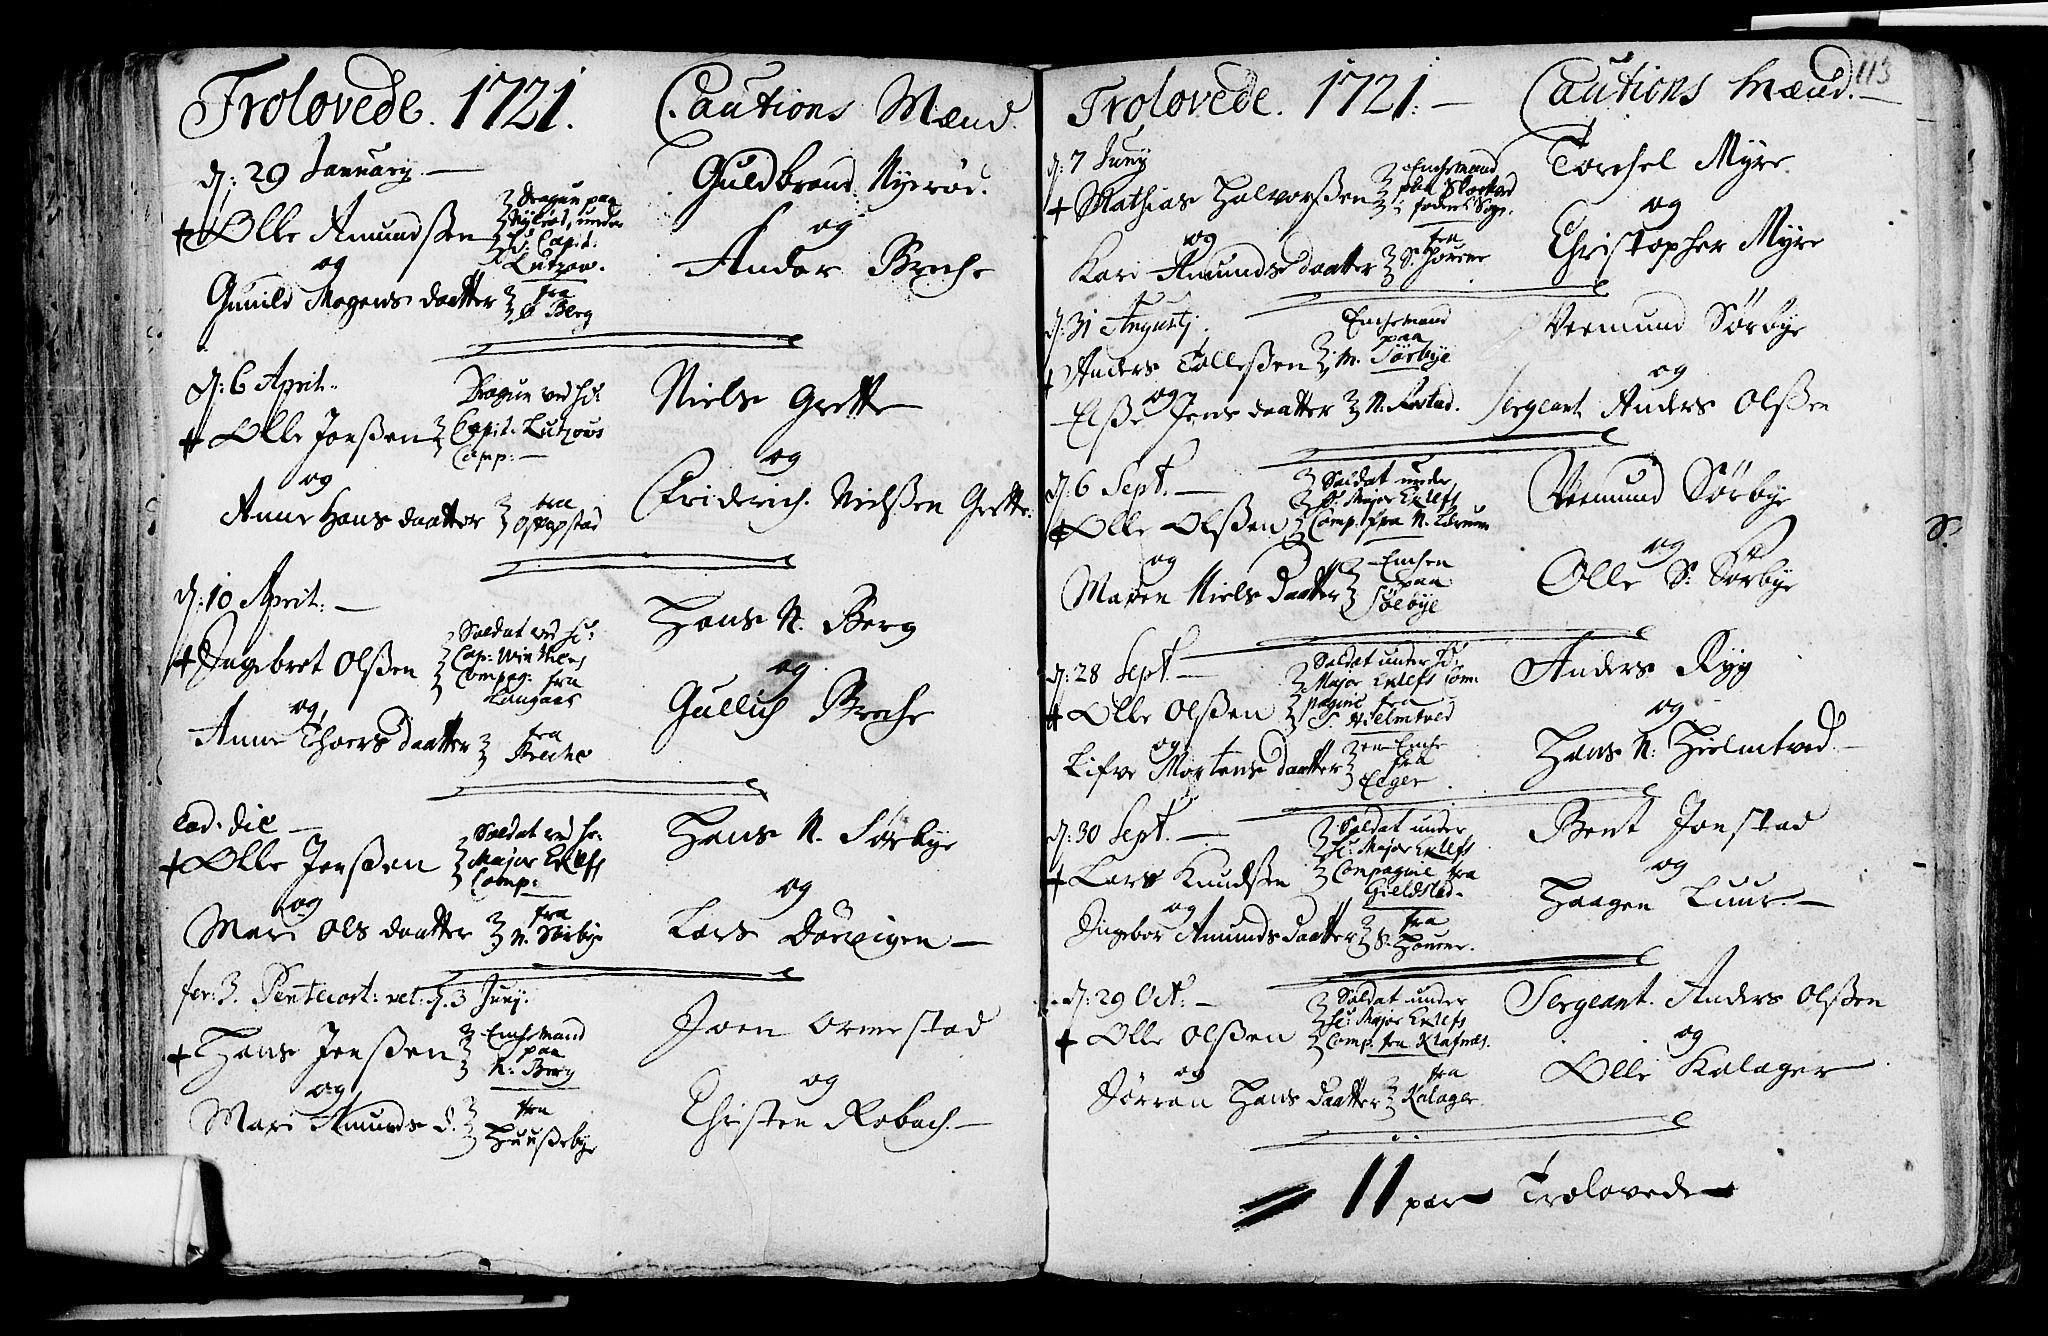 Trolovede. 1721.
Cautions Mænd.
d: 29 January.
+ Olle Amundßen
Dragun paa
Nÿerød, under
Hr. Capit:
Lutzow.
og
Gunild Mogens daatter
fra
Berg
Guldbrand Nÿerød.
og
Andor Breche
d: 6 April.
+ Olle Jonßen
Dragun ved Hr
Capit. Lutzous
Comp:
og
Anne Hans daatter
fra
Niels Grette
og
Friderich Nielßen Grette.
d: 10 April:
+ Ingebret Olßen
Soldat ved Hr:
Cap:
Compag: fra
Langaas
og
Anne Thoers daatter
fra
Breche
Hans N. Berg
og
Gullich Breche
Eod. die
+ Olle Jenßen
Soldat ved Hr:
Major Enlefs
Comp:
og
Mari Ols daatter
fra
N. Sørbye
Hans N. Sørbye
og
Lars Dørrigen
fer: 3. Pentecost: vel: d. 3 Junÿ.
+ Hans Jenßen
Enchemand
paa
N: Berg
og
Mari Amunds d.
fra
Huußebye
Joen Ormestad
og
Christen Robach.
113
Trolovede. 1721.
Cautions Mænd.
d: 7 Junÿ
+ Mathias Halvorßen
Enchemand
og
Kari Amunds daatter
fra
S. Hourne
Torchel Mÿre.
og
Christopher Mÿre
d: 31 Augustj.
+ Anders Tolleßen
Enchemand
paa
M. Sørbÿe
og
Elße Jens daatter
Veemund Sørbye
og
Sergeant Anders Olßen
d: 6 Sept.
+ Olle Olßen
Soldat under
Hr. Major Enlefs
Comp. fra N. Lærum
og
Maren Niels daatter
Enchen
paa
Sølbÿe
Veemund Sørbye
og
Olle S: Sørbye
S.
d: 28 Sept.
+ Olle Olßen
Soldat under Hr.
Major Enlefs Com-
pagnie fra
S. Hielmtved
og
Lifve Mortens daatter
en Enche
fra
Eeger
Anders Rÿg
og
Hans N: Hielmtved.
d: 30 Sept.
+ Lars Knudßen
Soldat under
Hr: Major Enlefs
Compagnie fra
Gieldstad
og
Ingebor Amunds daatter
fra
S. Hourne.
Bent Jonstad
og
Haagen Luur.
d: 29 Oct:
+ Olle Olßen
Soldat under
Hr: Major Enlefs
Comp. fra Klafnæs.
og
Jørran Hans daatter
fra
Kalager
Sergeant. Anders Olßen
og
Olle Kalager
11 par Trolovede